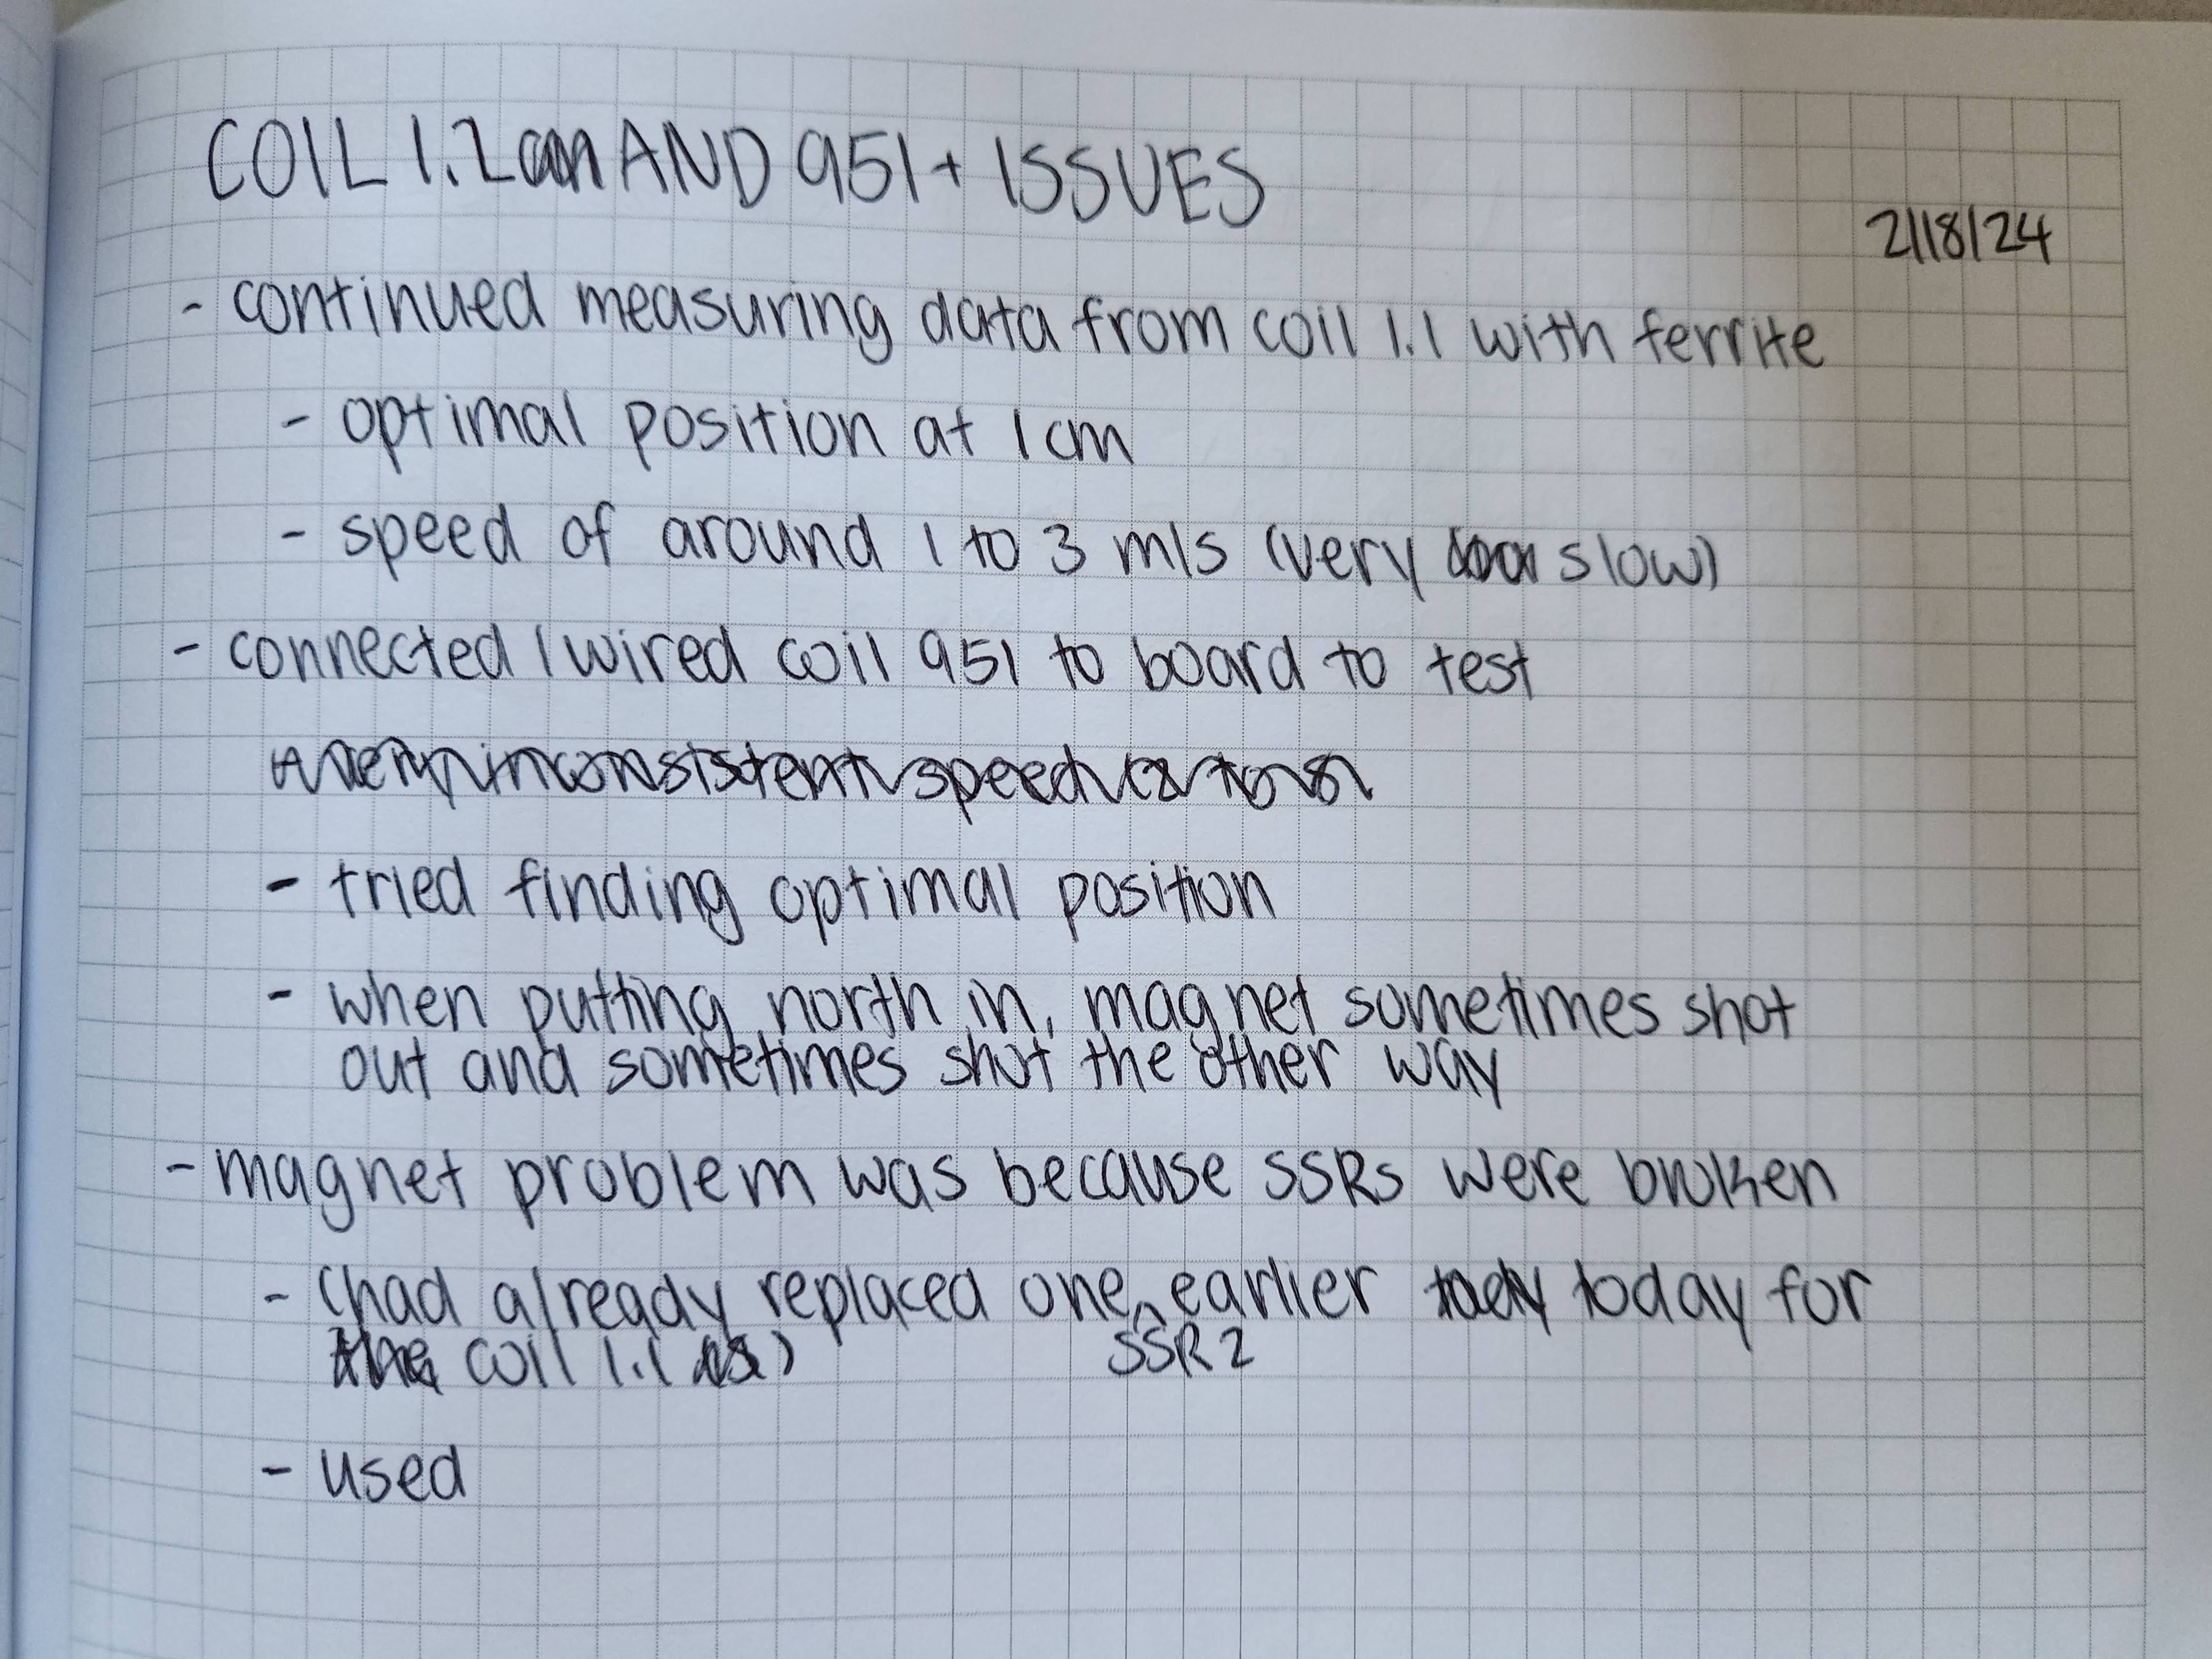 COIL 1.2 AND 951 + ISSUES
2/18/24
- continued measuring data from coil 1.1 with ferrite
- optimal position at 1cm
- speed of around 1 to 3 m/s (very slow)
- connected/wired coil 951 to board to test
- tried finding optimal position
- when putting north in, magnet sometimes shot
out and sometimes shot the other way
- magnet problem was because SSRs were broken
- (had already replaced one ^ earlier today for
SSR 2
coil 1.1)
- used